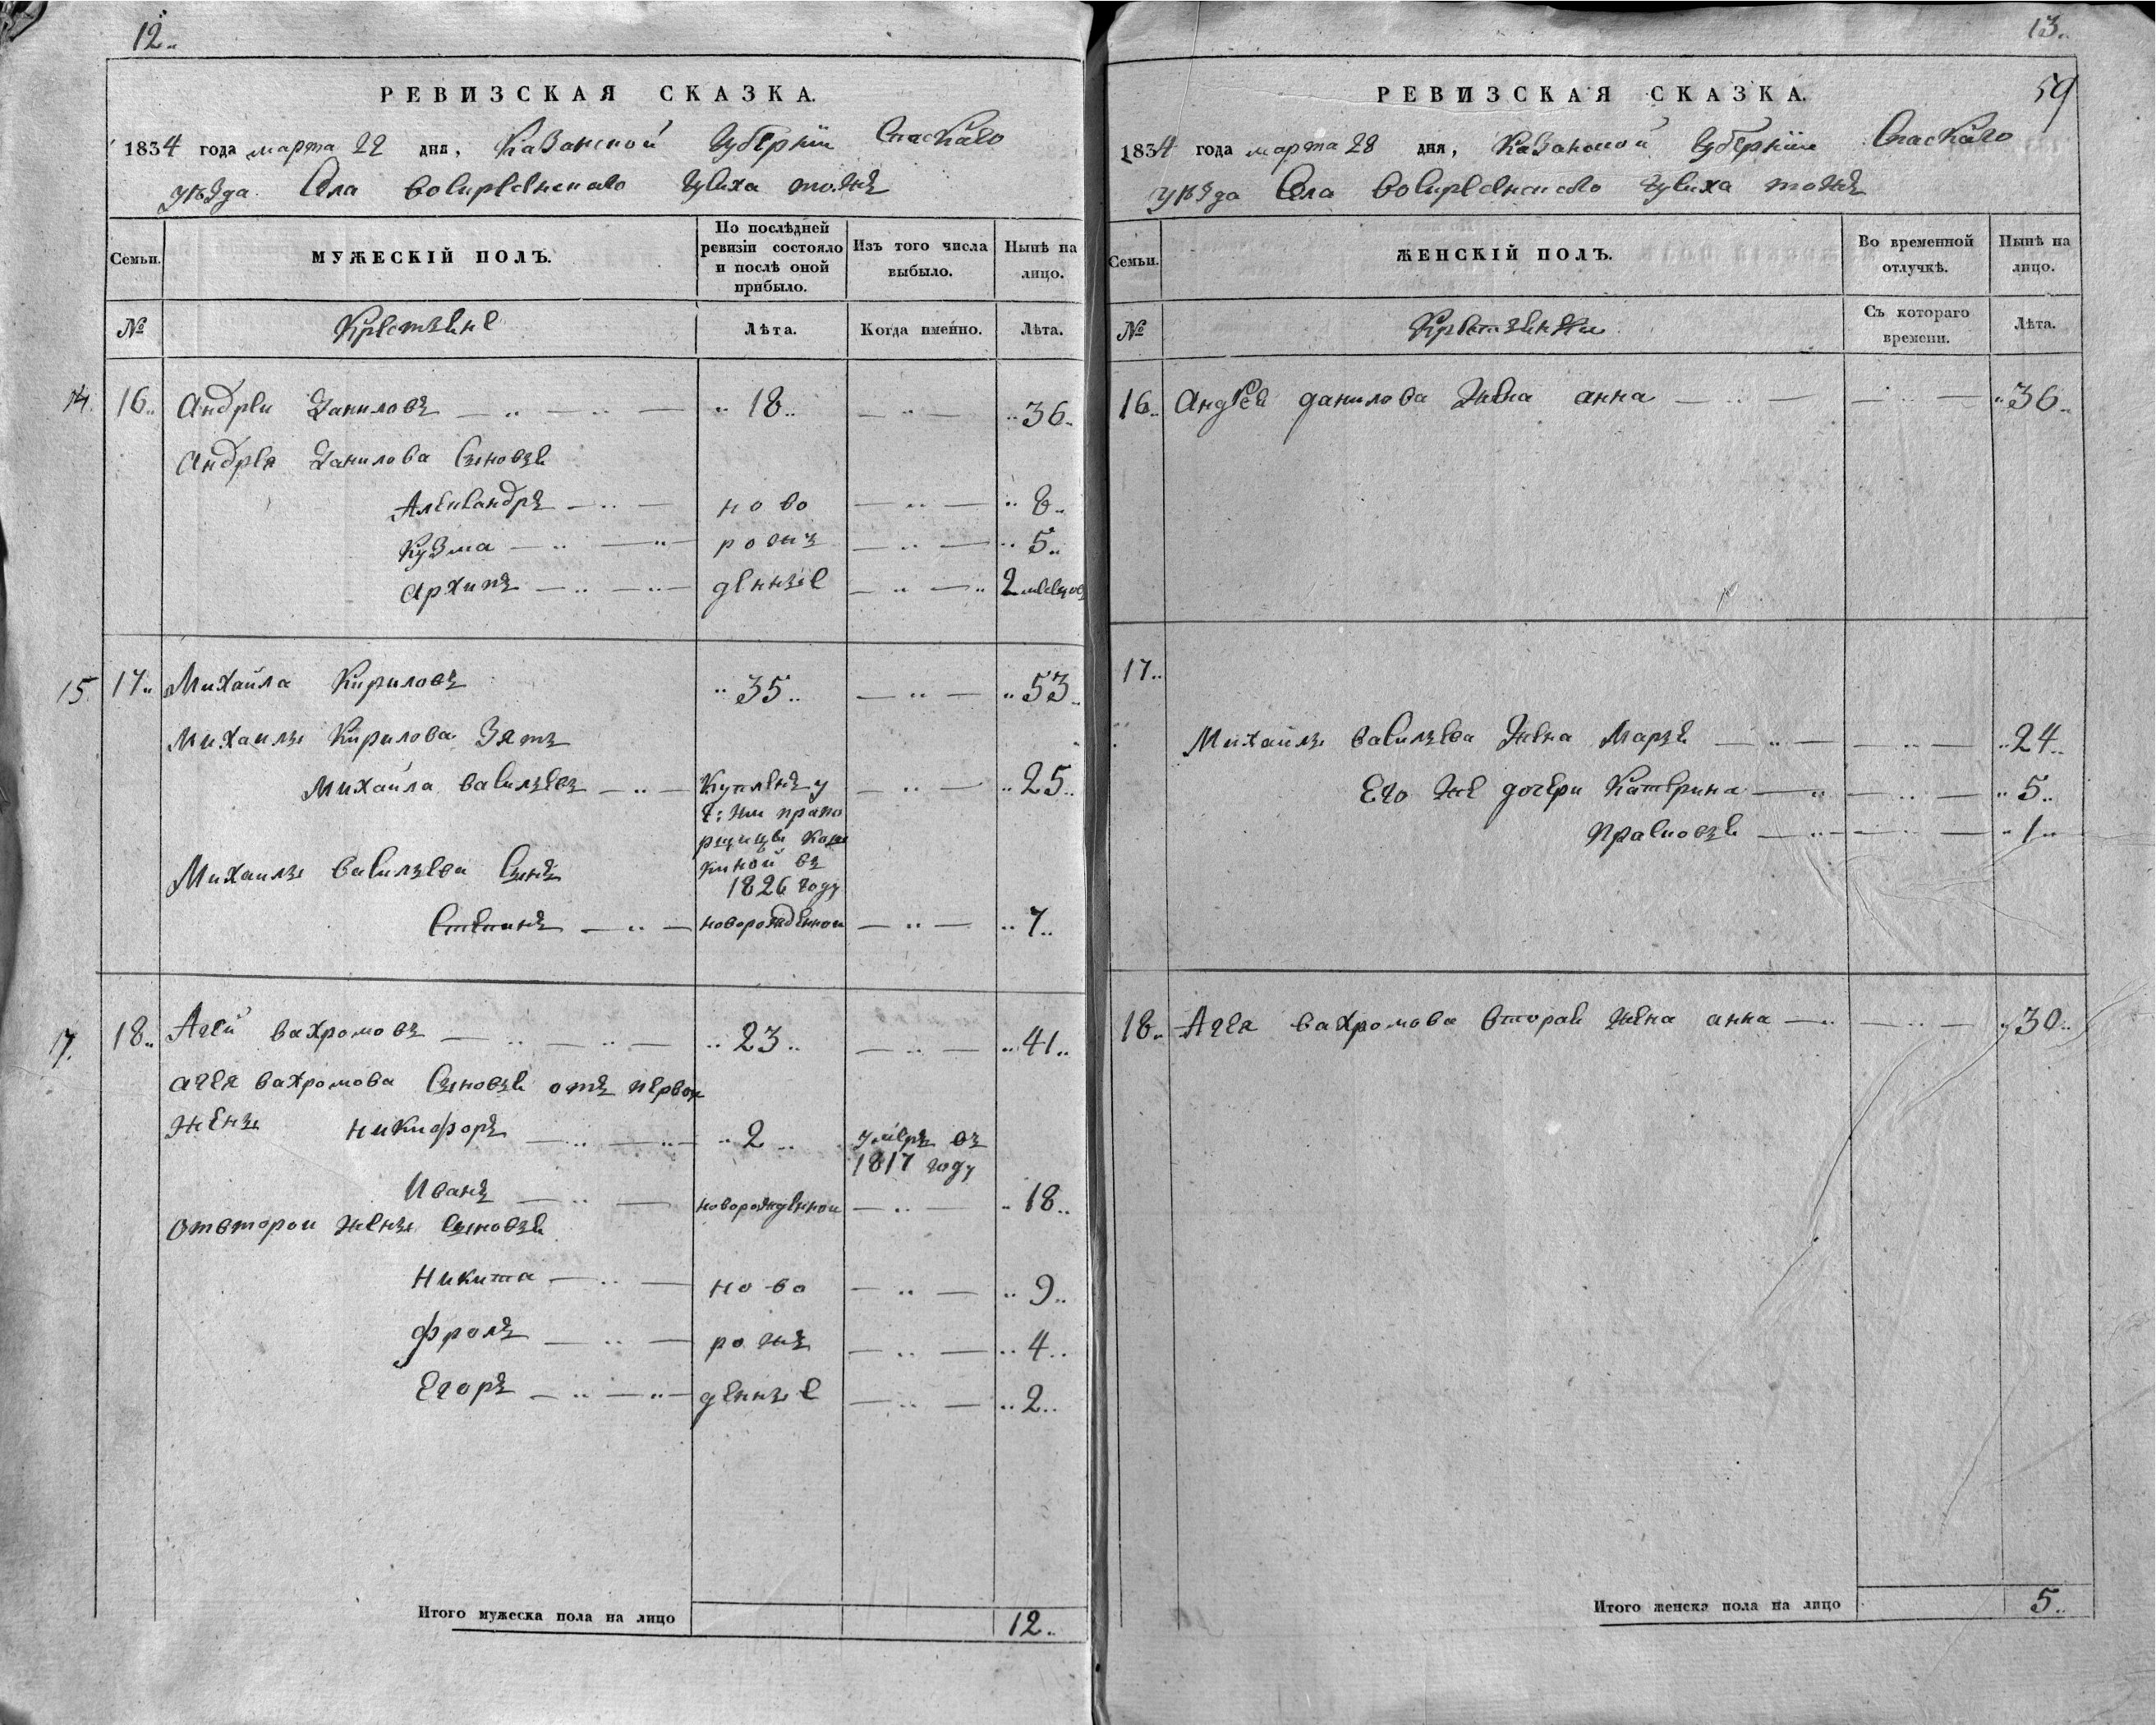 12..
РЕВИЗСКАЯ СКАЗКА.
1834 года марта 22 дня, Казанской Губернiи Спаскаго
уѣзда Села воскресенскаго чувиха тожъ
Семьи.
МУЖЕСКIЙ ПОЛЪ.
По послѣдней ревизiи состояло и послѣ оной прибыло.
Изъ того числа выбыло.
Нынѣ на лицо.
№
Крестьяне
Лѣта.
Когда именно.
Лѣта.
14. 16.. Андрей Даниловъ — 18.. — 36..
Андрея Данилова Сыновья
Александръ — ново — 8..
Кузма — рожъ — 5..
Архипъ — денные — 2 месецовъ
15. 17.. Михайла Кириловъ 35.. — 53..
Михайлы Кирилова Зять
Михайла васильевъ — Купленъ у — 25..
Г: жи прапо
рщицы
киной въ
1826 году
Михайлы васильева Сынъ
Степанъ — новорожденной — 7..
17. 18.. Агей вахромовъ — 23.. — 41..
агея вахромова Сыновья отъ первой
жены никифоръ — 2.. умеръ въ
1817 году
Иванъ — новорожденной — 18..
Отвторой жены сыновья
Никита — ново — 9..
фролъ — рожъ — 4..
Егоръ — денные — 2..
Итого мужеска пола на лицо 12..
13..
59
РЕВИЗСКАЯ СКАЗКА.
1834 года марта 28 дня, Казанской Губернiи Спаскаго
уѣзда Села воскресенскаго чувиха тожъ
Семьи.
ЖЕНСКIЙ ПОЛЪ.
Во временной отлучкѣ.
Нынѣ на лицо.
№
Крестьянки
Съ котораго времени.
Лѣта.
16.. Андрея данилова Жена анна — 36..
17..
Михайлы васильева Жена Марья — 24..
Его же дочери Катерина — 5..
Прасковья — 1..
18.. Агея вахромова вторая жена анна — 30..
Итого женска пола на лицо 5..